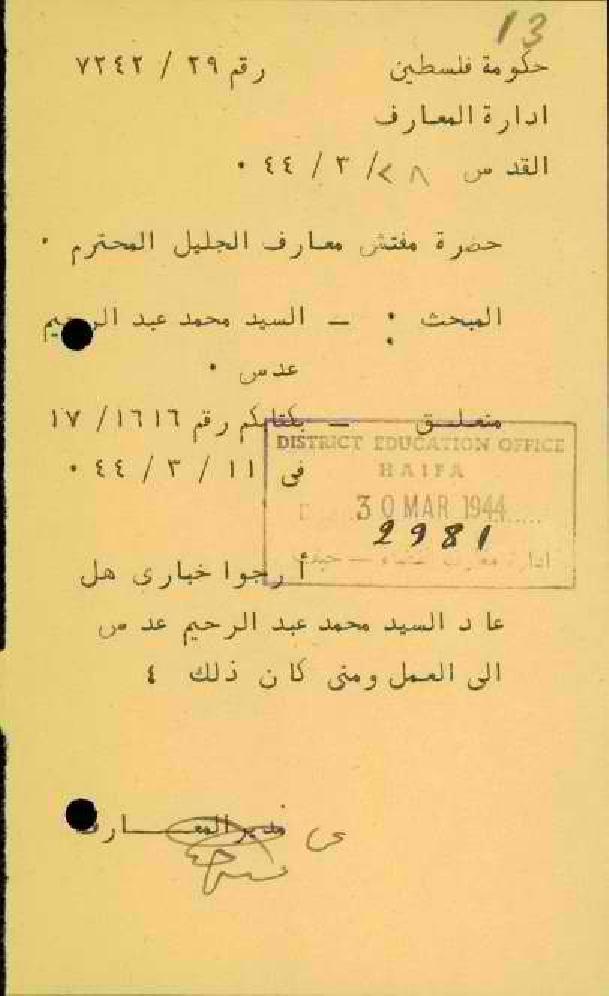 13
حكومة فلسطين رقم ٢٩ / ٧٢٤٢
ادارة المعارف
القدس ٢٨ / ٣ / ٤٤ ٠
حضرة مفتش معارف الجليل المحترم ٠
المبحث : ـ السيد محمد عبد الرحيم
عدس ٠
متعلـق ـ بكتابكم رقم ١٦١٦ / ١٧
فى ١١ / ٣ / ٤٤ ٠
DISTRICT EDUCATION OFFICE
HAIFA
30 MAR 1944
2981
ادارة معارف
أرجوا خبارى هل
عاد السيد محمد عبد الرحيم عدس
الى العمل ومتى كان ذلك ٤
ع مدير المعـــارف